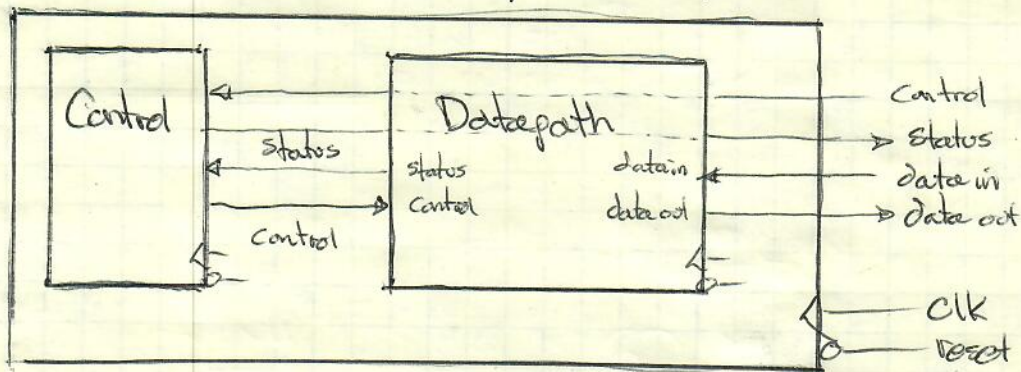 Control
Datapath
status
control
status
control
data in
data out
control
status
data in
data out
clk
reset